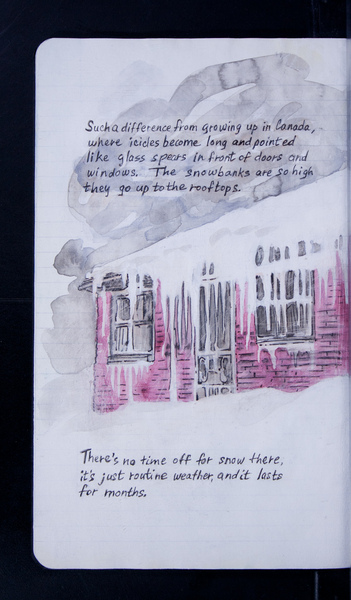 Such a difference from growing up in Canada,
where icicles become long and pointed
like glass spears in front of doors and
windows. The snowbanks are so high
they go up to the rooftops.
There's no time off for snow there,
it's just routine weather, and it lasts
for months.